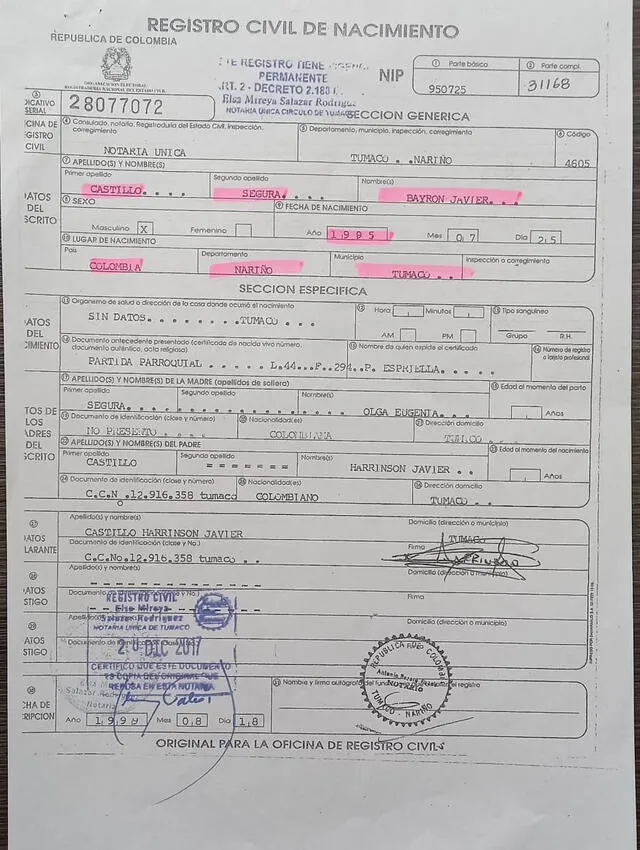 REGISTRO CIVIL DE NACIMIENTO
REPUBLICA DE COLOMBIA
ORGANIZACION ELECTORAL
REGISTRADURIA NACIONAL DEL ESTADO CIVIL
REGISTRO TIENE
PERMANENTE
ART. 2 - DECRETO 2.188
Elsa Mireya Salazar Rodrigu
NOTARIA UNICA CIRCULO DE TUMACO
NIP
① Parte básico
950725
② Parte compl.
31168
③ DICATIVO SERIAL
28077072
SECCION GENERICA
CINA DE GISTRO CIVIL
④ Consulado, notaría, Registraduría del Estado Civil, inspección, corregimiento
NOTARIA UNICA
⑤ Departamento, municipio, inspección, corregimiento
TUMACO . .NARIÑO
⑥ Código
4605
DATOS DEL SCRITO
⑦ APELLIDO(S) Y NOMBRE(S)
Primer apellido
CASTILLO. . . .
Segundo apellido
SEGURA. . . .
Nombre(s)
BAYRON JAVIER. . .
⑧ SEXO
Masculino X
Femenino
⑨ FECHA DE NACIMIENTO
Año 1995 Mes 07 Día 25
⑩ LUGAR DE NACIMIENTO
País
COLOMBIA
Departamento
NARIÑO
Municipio
TUMACO
Inspección o corregimiento
SECCION ESPECIFICA
DATOS DEL CIMIENTO
⑪ Organismo de salud o dirección de la casa donde ocurrió el nacimiento
SIN DATOS. . . . . . . .TUMACO . . .
⑫ Hora Minutos
AM PM
⑬ Tipo sanguíneo
Grupo R.H.
⑭ Documento antecedente presentado (certificado de nacido vivo número, documento auténtico, acta religiosa)
PARTIDA PARROQUIAL . . . . . L.44...F..294..
⑮ Nombre de quien expide el certificado
P. ESPRIELLA. . . .
⑯ Número de registro o tarjeta profesional
TOS DE LOS ADRES DEL SCRITO
⑰ APELLIDO(S) Y NOMBRE(S) DE LA MADRE (apellidos de soltera)
Primer apellido
SEGURA. . .
Segundo apellido
Nombre(s)
OLGA EUGENIA. . .
⑱ Edad al momento del parto
Años
⑲ Documento de identificación (clase y número)
NO PRESENTO . . . .
⑳ Nacionalidad(es)
COLOMBIANA
㉑ Dirección domicilio
TUMACO
㉒ APELLIDO(S) Y NOMBRE(S) DEL PADRE
Primer apellido
CASTILLO
Segundo apellido
= = = = = = =
Nombre(s)
HARRINSON JAVIER . .
㉓ Edad al momento del nacimiento
Años
㉔ Documento de identificación (clase y número)
C.C.N .12.916.358 tumaco
㉕ Nacionalidad(es)
COLOMBIANO
㉖ Dirección domicilio
TUMACO. . . .
DATOS LARANTE
Apellido(s) y nombre(s)
CASTILLO HARRINSON JAVIER
Domicilio (dirección o municipio)
TUMACO
Documento de identificación (clase y No.)
C.C.No.12.916.358 tumaco . .
Firma
DATOS STIGO
Apellido(s) y nombre(s)
Domicilio (dirección o municipio)
Documento de identificación (clase y No.)
Firma
DATOS STIGO
Apellido(s) y nombre(s)
Domicilio (dirección o municipio)
Documento de identificación (clase y No.)
Firma
REGISTRO CIVIL
Elsa Mireya
Salazar Rodriguez
NOTARIA UNICA DE TUMACO
20 DIC 2017
CERTIFICO QUE ESTE DOCUMENTO
ES COPIA DEL ORIGINAL QUE
REPOSA EN ESTA NOTARIA
REPUBLICA DE COLOMBIA
NOTARIO
TUMACO - NARIÑO
CHA DE CRIPCION
Año 1999 Mes 0,8 Día 1,8
Nombre y firma autógrafa del registro
ORIGINAL PARA LA OFICINA DE REGISTRO CIVIL